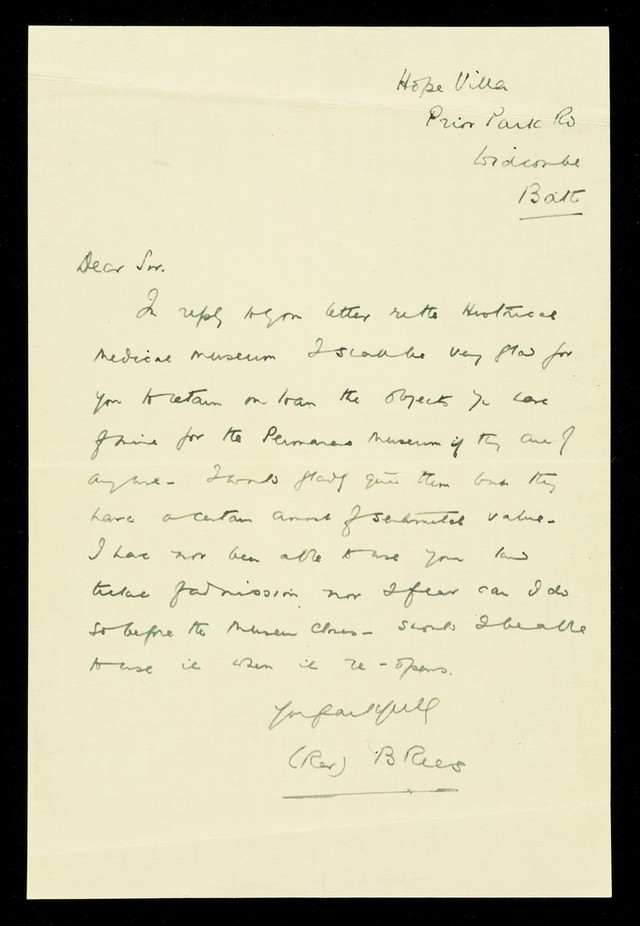 Hope Villa
Prior Park Rd
Widcombe
Bath
Dear Sir.
In reply to your letter re the Historical
Medical Museum I shall be very glad for
you to retain on loan the objects you have
of mine for the Permanent Museum if they are of
any use. I would gladly give them but they
have a certain amount of sentimental value.
I have not been able to use your kind
ticket of admission nor I fear can I do
so before the Museum closes. Should I be able
to use it when it re-opens.
Yours faithfully
(Rev) B Rees